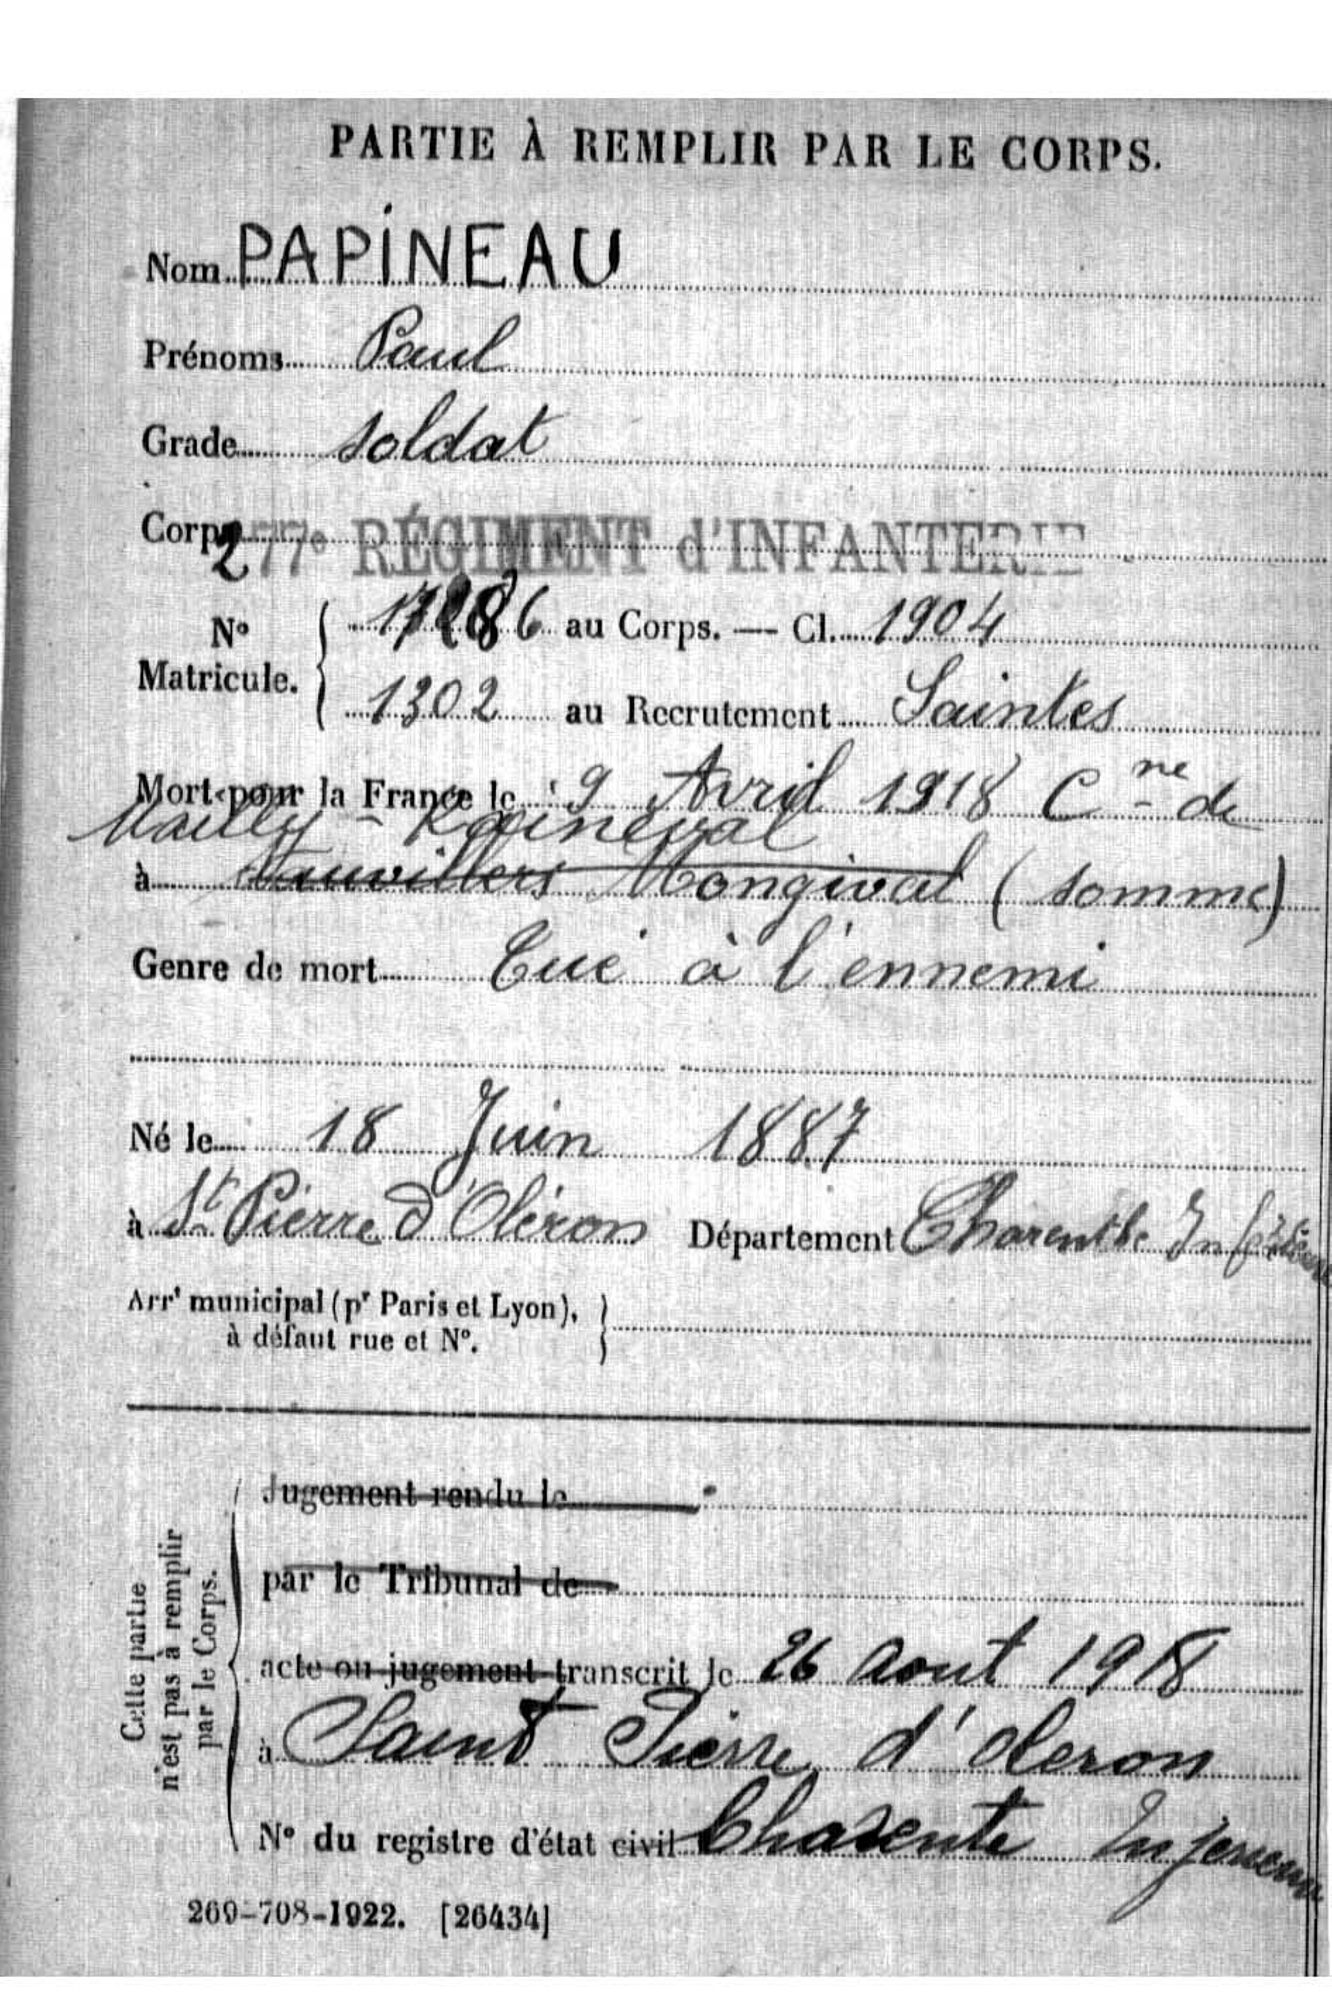 PARTIE À REMPLIR PAR LE CORPS.
Nom PAPINEAU
Prénoms Paul
Grade soldat
Corps 277e RÉGIMENT d'INFANTERIE
No Matricule. 86 au Corps. — Cl. 1904
1302 au Recrutement Saintes
Mort pour la France le 9 Avril 1918 Cne de
Mailly - Raineval
à Mongival (Somme)
Genre de mort Tué à l'ennemi
Né le 18 Juin 1887
à St Pierre d'Oléron Département Charente Inférieure
Arrt municipal (pr Paris et Lyon),
à défaut rue et No.
Cette partie
n'est pas à remplir
par le Corps.
Jugement rendu le
par le Tribunal de
acte ou jugement transcrit le 26 aout 1918
à Saint Pierre d'oleron
No du registre d'état civil Charente Inferieure
269-708-1922. [26434]